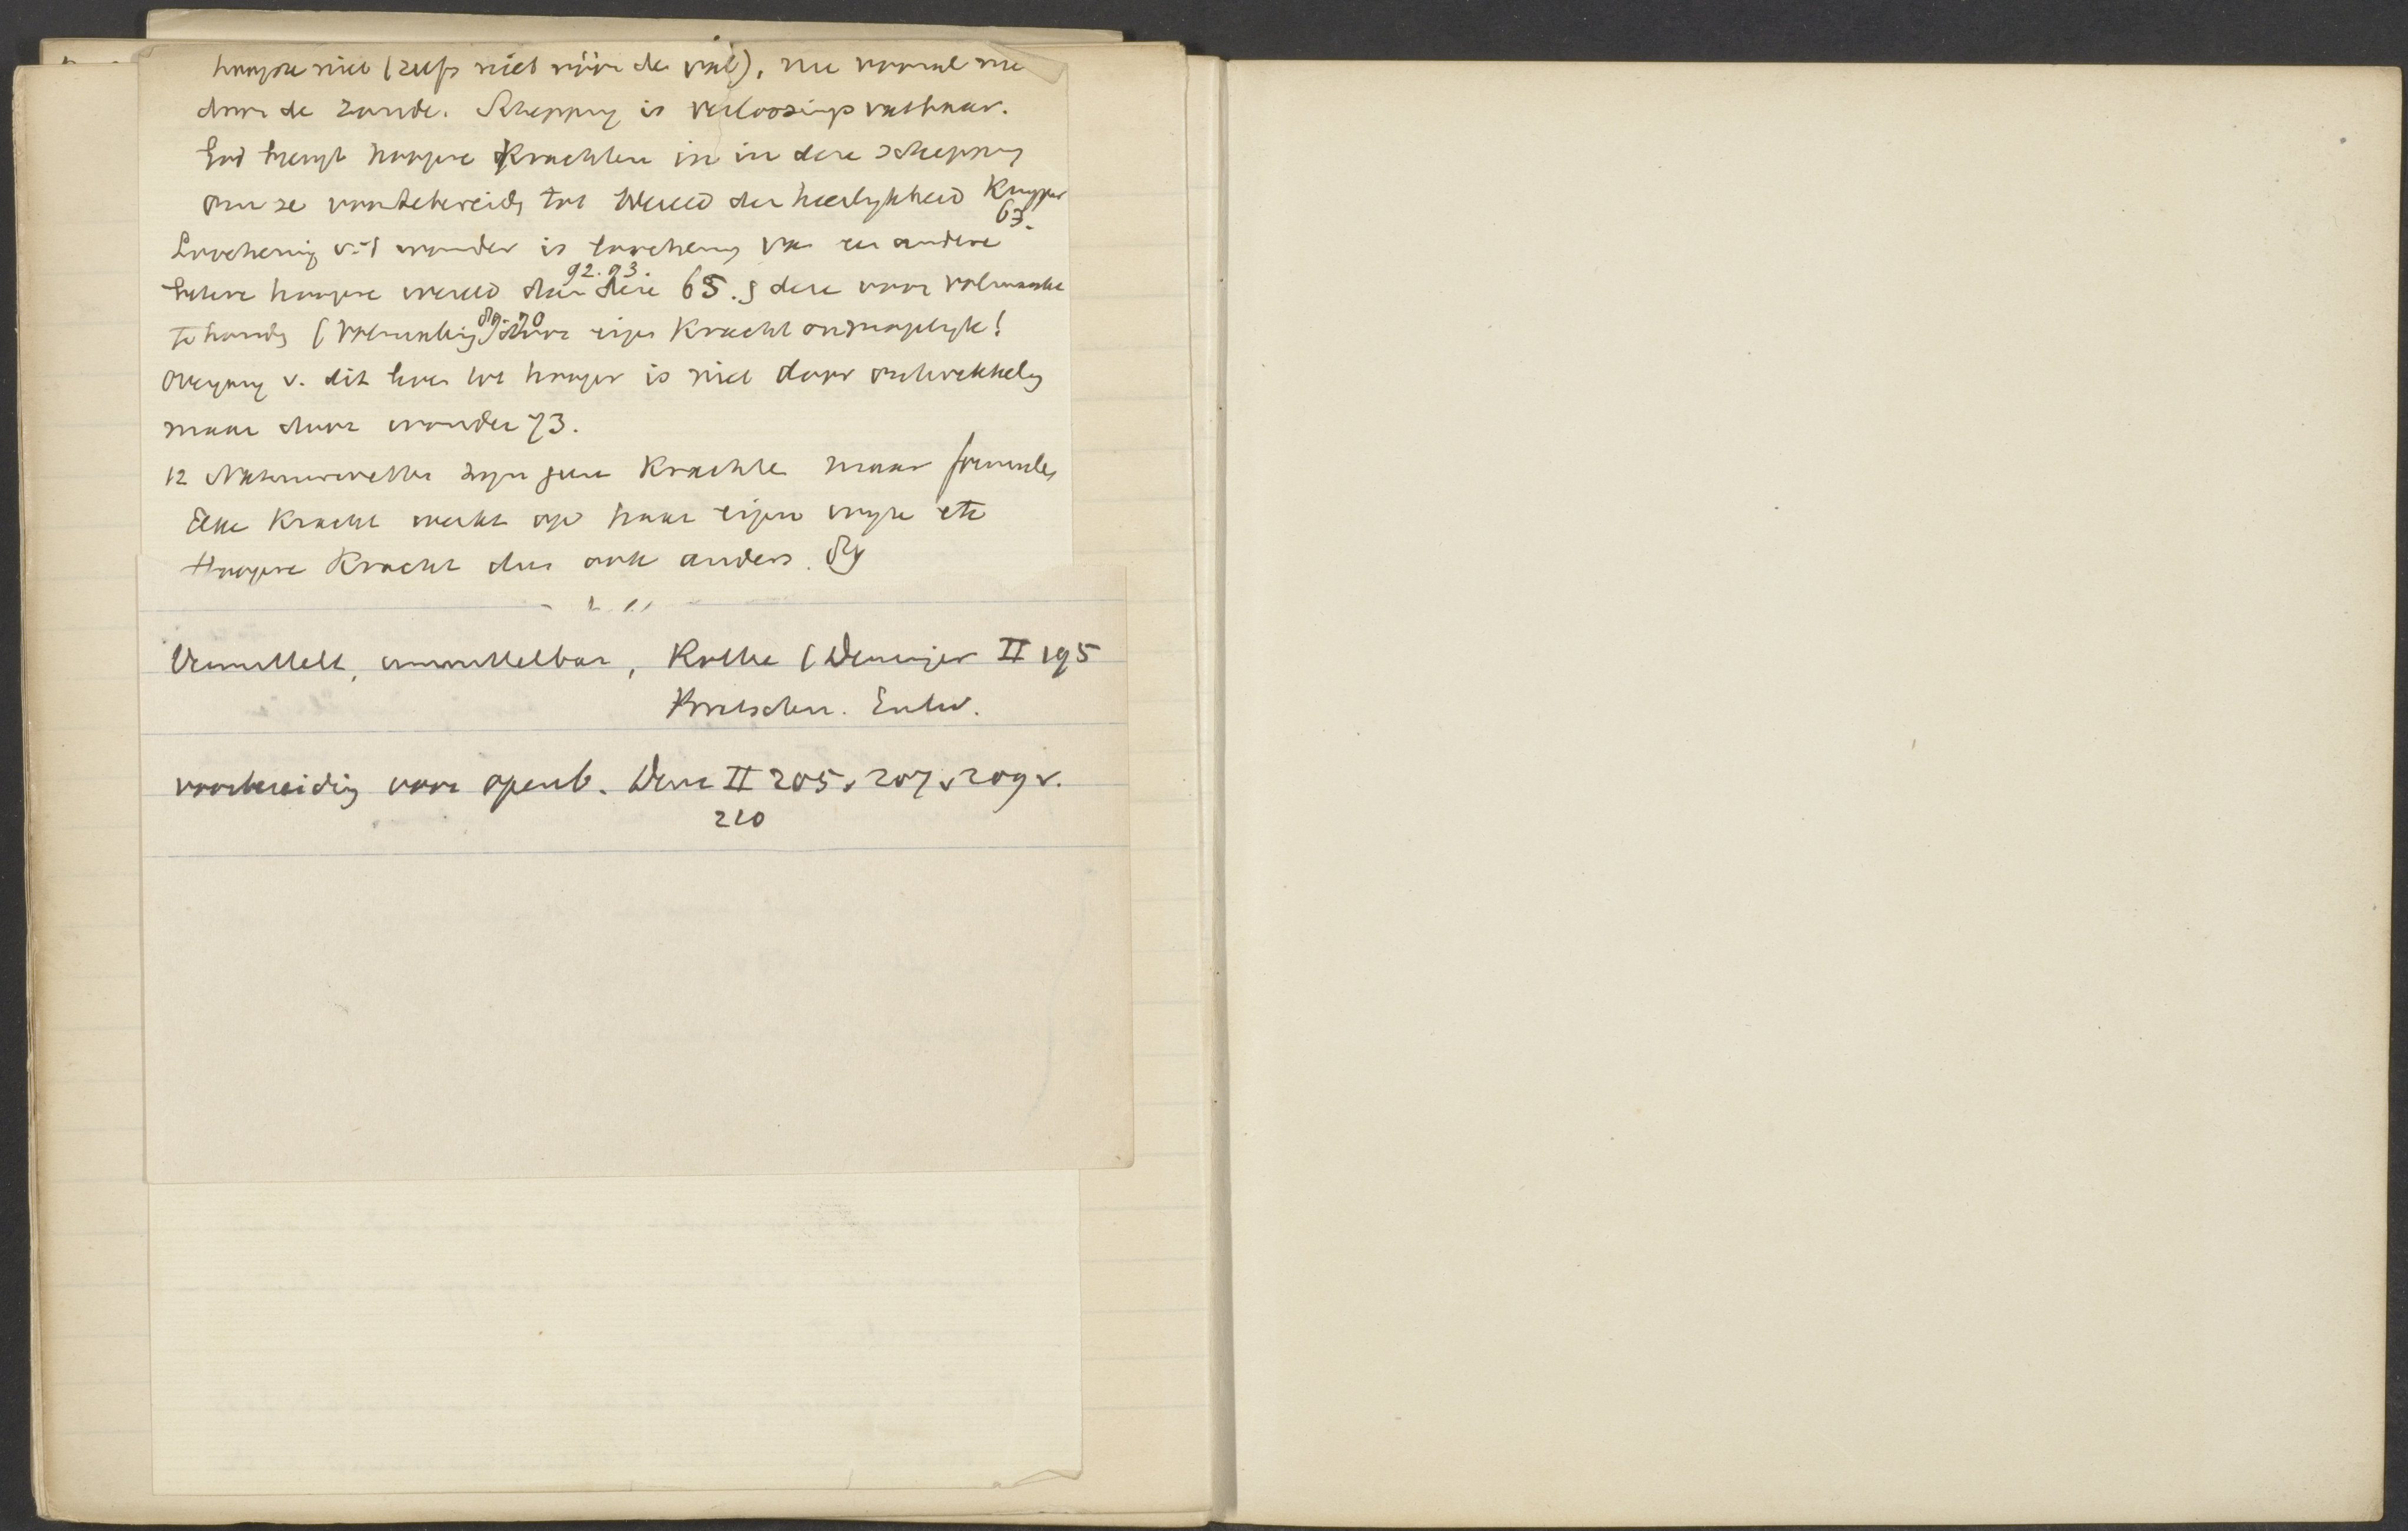 hoogste niet (zelfs niet vóór de val), nu vooral nie
door de zonde. Schepping is verlossingsvatbaar.
God brengt hoogere krachten in in deze schepping
om ze voortebereidg tot wereld der heerlykheid Kuyper
63.
Loochenig v. 't wonder is loocheng van een andere
92. 93.
betere hoogere wereld dan deze 65. § deze voor volmaakte
89. 90
te houdg (volmakig) door eigen kracht onmogelyk!
Overgang v. dit leven tot hooger is niet door ontwikkelg
maar door wonder 73.
12 Natuurwetten zyn geen krachten maar formules
Elke kracht werkt op haar eigen wyze etc
Hoogere kracht dus ook anders.
Vermittelt, unmittelbar, Rothe (Deninger II 195
Kretschm. Entw.
voorbereidig voor openb. Den II 205 v 207 v 209 v.
210